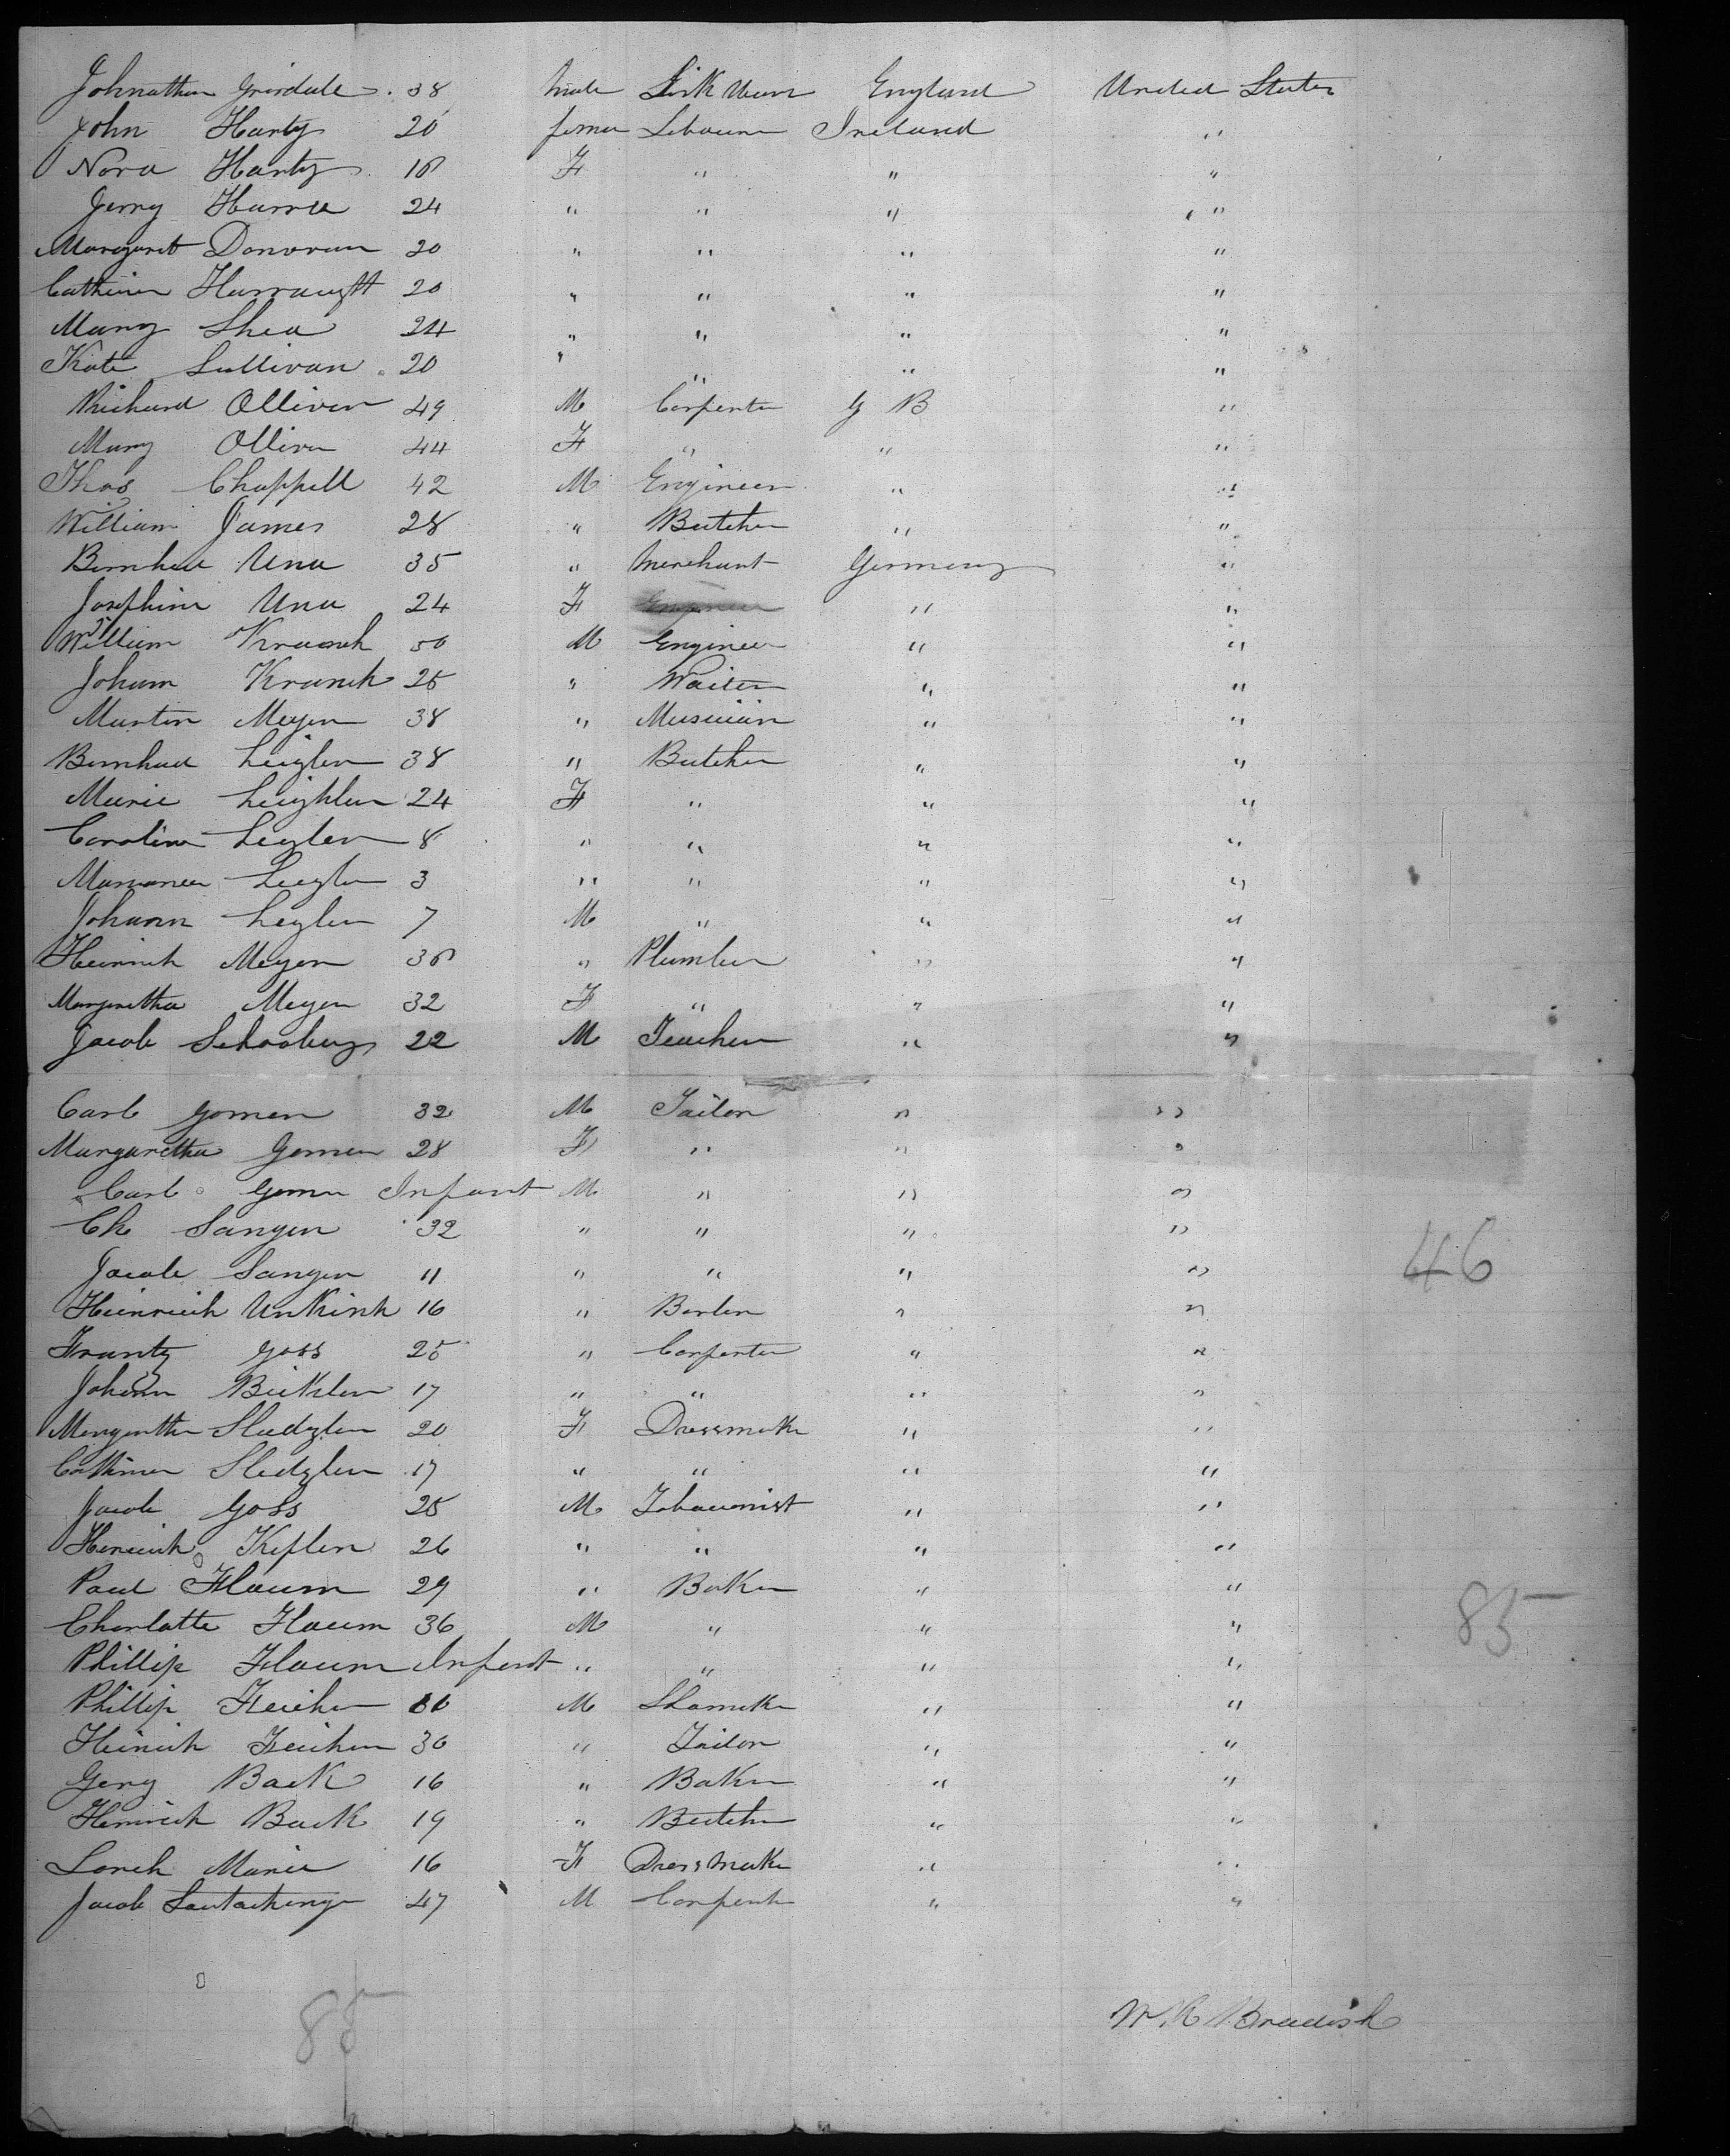 Johnathan Grisdale. 38 Male Silk Weaver England United States
John Harty 20 female Labourer Ireland "
Nora Harty 18 F " " "
Jerry Harra 24 " " " "
Margaret Donovan 20 " " " "
Catherine 20 " " " "
Mary Shea 24 " " " "
Kate Sullivan 20 " " " "
Richard Olliver 49 M Carpenter G B "
Mary Olliver 44 F " " "
Thos Chappell 42 M Engineer " "
William James 28 " Butcher " "
Bernhard Una 35 " Merchant Germany "
Josephine Una 24 F " "
William Kranck 50 M Engineer " "
Johann Kranck 25 " Waiter " "
Martin Meyer 38 " Musician " "
Bernhard Leigler 38 " Butcher " "
Marie Leighler 24 F " " "
Caroline Legler 8 " " " "
Leigler 3 " " " "
Johann Legler 7 M " " "
Heinrich Meyer 38 " Plumber " "
Margaretha Meyer 32 F " " "
Jacob 22 M Teacher " "
Carl Gomer 32 M Tailor " "
Margaretha Gomer 28 F " " "
Carl Gomer Infant M " " "
Ch Sanger 32 " " " "
46
Jacob Sanger 11 " " " "
Heinrich Unkink 16 " " "
Frantz Goss 25 " Carpenter " "
Johann Bickler 17 " " " "
Margaretha Sledzler 20 F Dressmaker " "
Sledzler 17 " " " "
Jacob Goss 25 M Tobaconist " "
Heinrich Kepler 26 " " " "
Paul Flaum 29 " Baker " "
Charlotte Flaum 36 M " " "
85
Phillip Flaum Infant " " " "
Phillip Feicher M Shomaker " "
Heinrich Feicher 30 " Tailor " "
Gerg Back 16 " Baker " "
Heinrich Back 19 " Butcher " "
Lorch Marie 16 F Dressmaker " "
Jacob 47 M Carpenter " "
W. R. Bradish
85